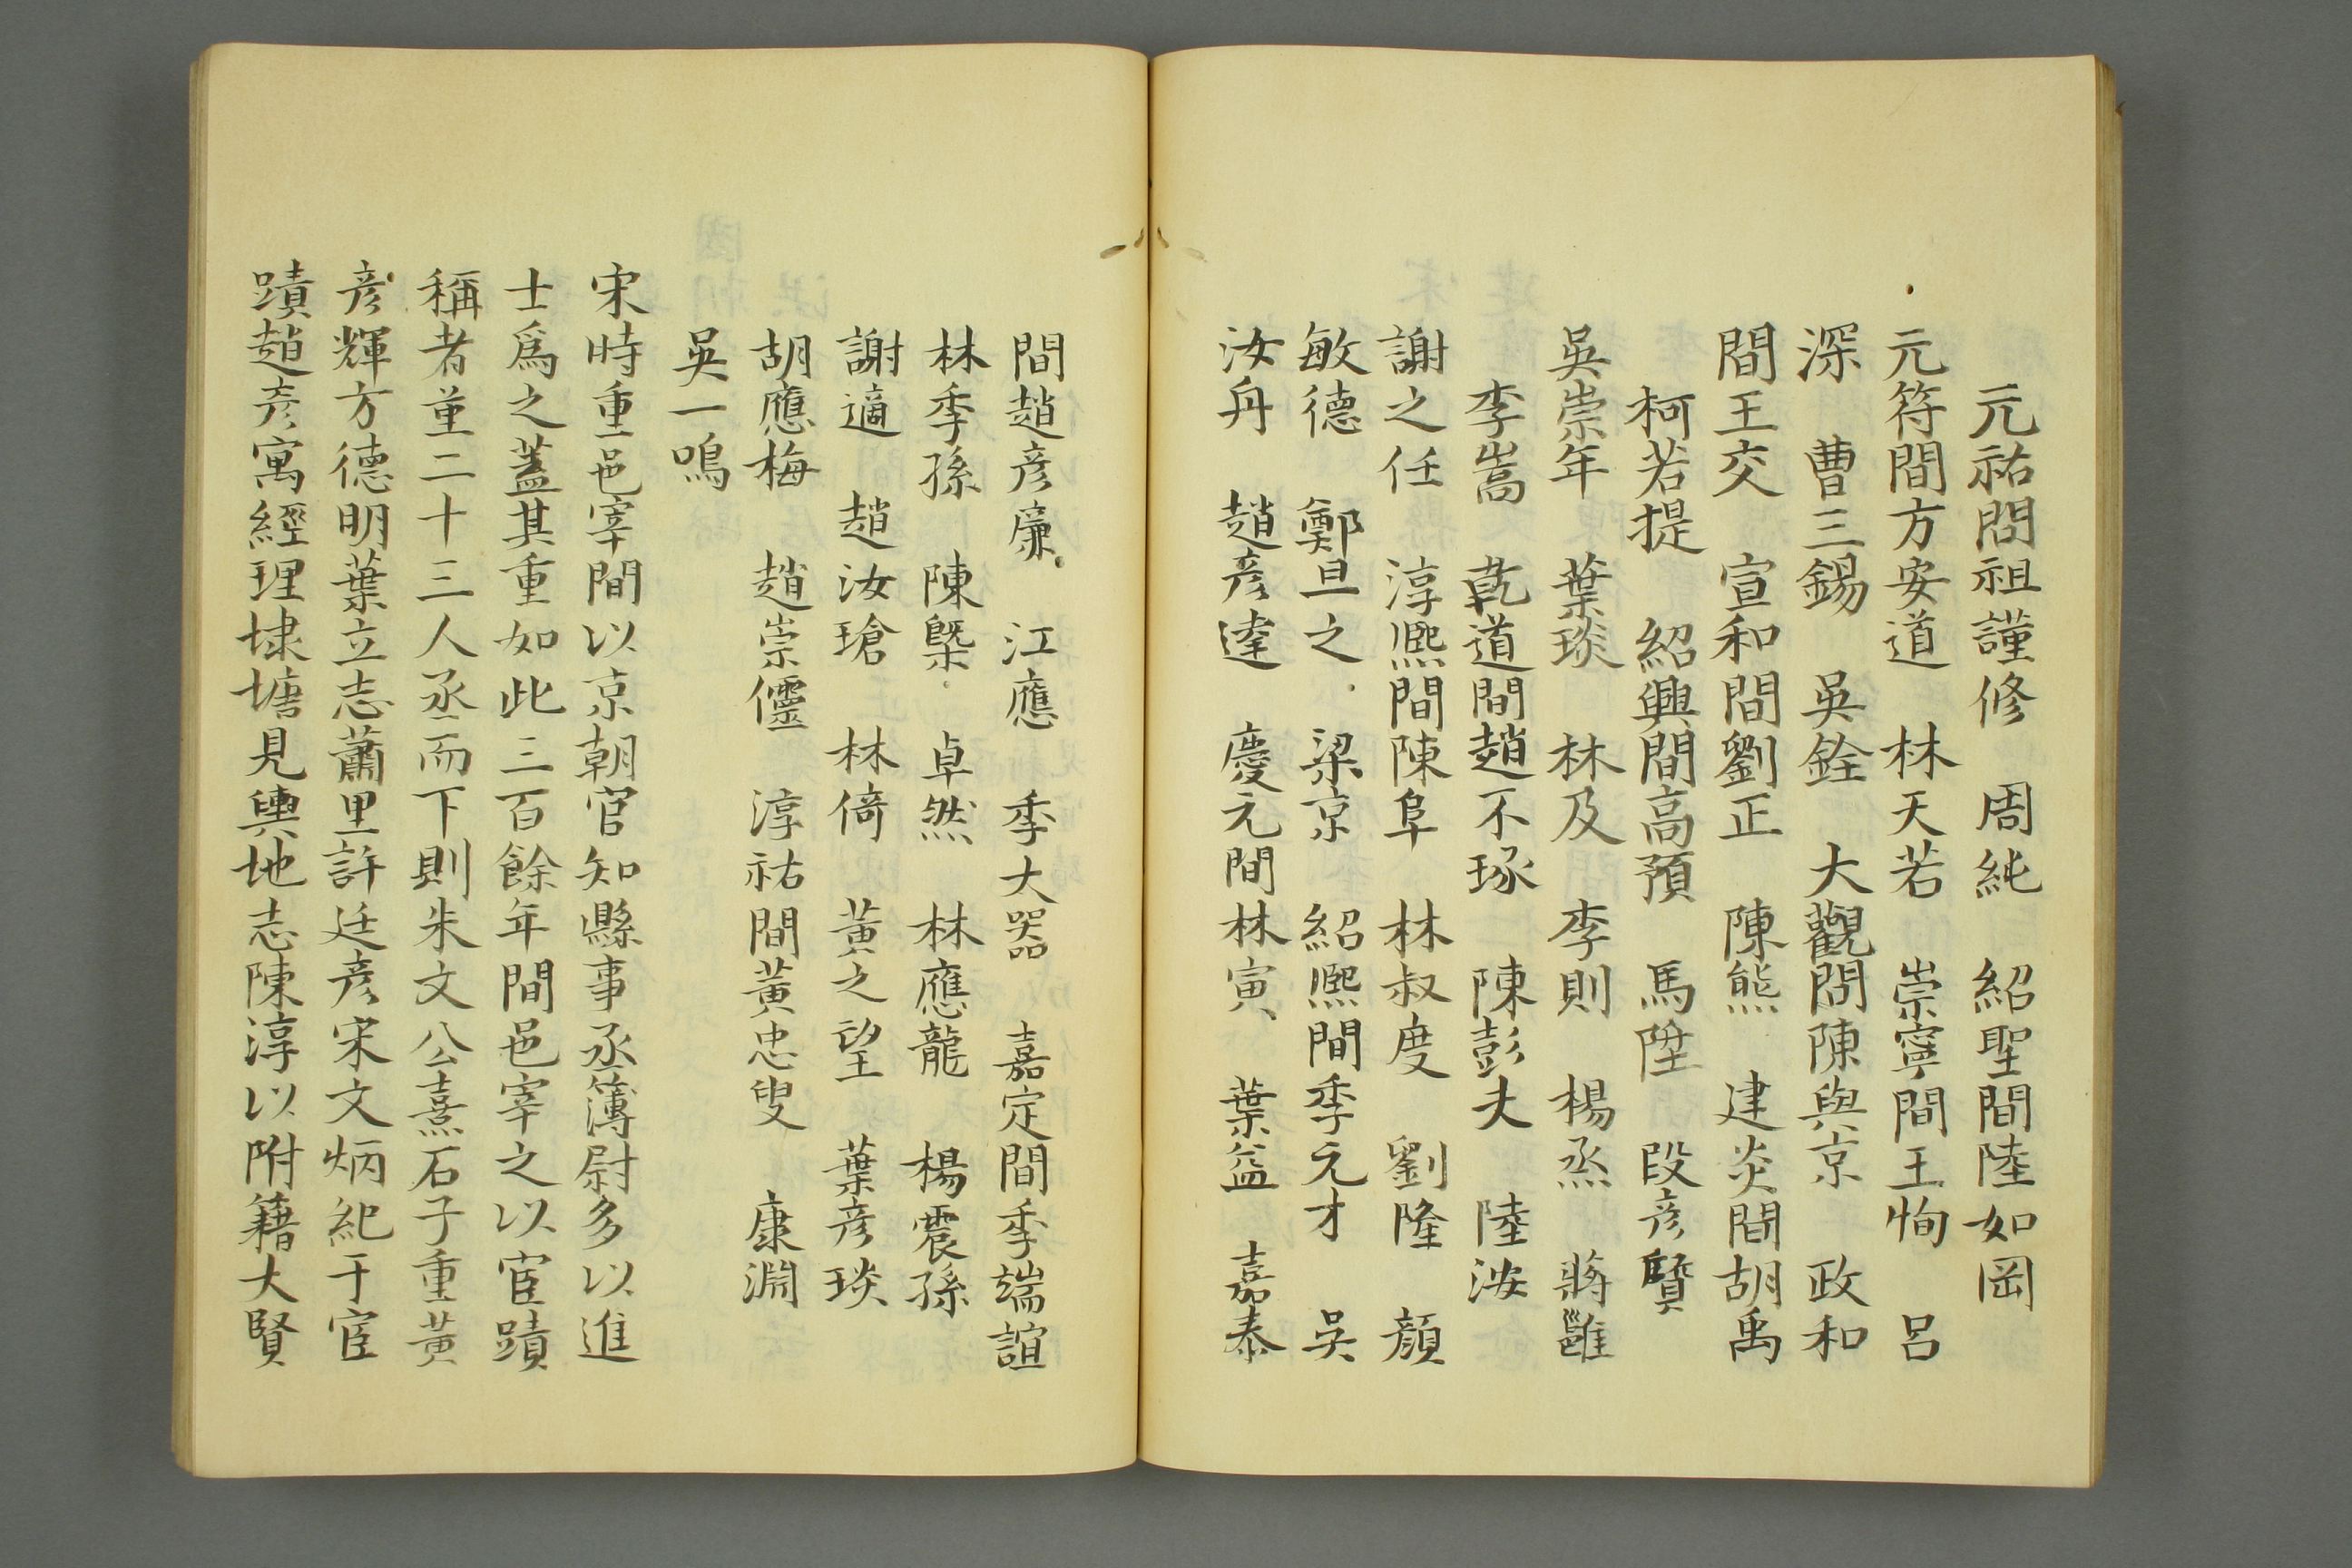 元祐間祖謹修　周純　紹聖間陸如岡
元符間方安道　林天若　崇寧間王恂　呂
深　曹三錫　吳銓　大觀間陳與京　政和
間王交　宣和間劉正　陳熊　建炎間胡禹
柯若提　紹興間高預　馬陞　段彥賢
吳崇年　葉琰　林及　李則　楊烝　蔣雝
李嵩　乾道間趙不琢　陳彭夫　陸洝
謝之任　淳熈間陳阜　林叔度　劉隆　顏
敏德　鄭旦之　梁京　紹熈間季元才　吳
汝舟　趙彥逹　慶元間林寅　葉益　嘉泰
間趙彥廉　江應　季大器　嘉定間季端誼
林季孫　陳槩　卓然　林應龍　楊震孫
謝適　趙汝瑲　林倚　黃之望　葉彥琰
胡應梅　趙崇僸　淳祐間黃忠叟　康淵
吳一鳴
宋時重邑宰間以京朝官知縣事丞簿尉多以進
士爲之蓋其重如此三百餘年間邑宰之以宦蹟
稱者董二十三人丞而下則朱文公熹石子重黃
彥輝方德明葉立志蕭里許廷彥宋文炳紀于宦
蹟趙彥寓經理埭塘見輿地志陳淳以附籍大賢